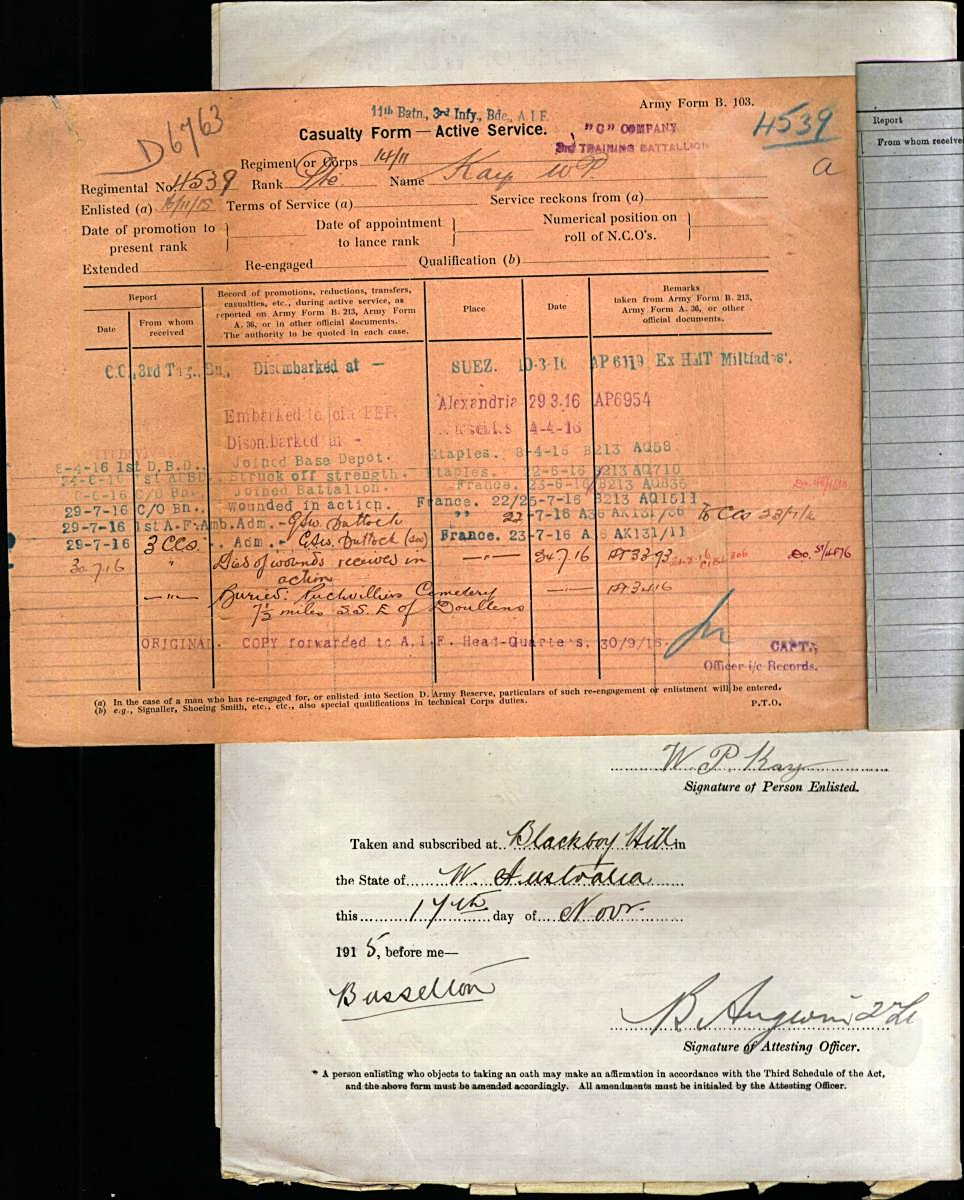 D6763
11th Batn., 3rd Infy., Bde., A.I.F.
Army Form B. 103.
Casualty Form — Active Service.
"C" COMPANY
3rd TRAINING BATTALION
4539
a
Regiment or Corps 14/11
Regimental No. 4539 Rank Pte Name Kay W P.
Enlisted (a) 16/11/15 Terms of Service (a) Service reckons from (a)
Date of promotion to present rank
Date of appointment to lance rank
Numerical position on roll of N.C.O's.
Extended Re-engaged Qualification (b)
Report
Date
From whom received
Record of promotions, reductions, transfers,
casualties, etc., during active service, as
reported on Army Form B. 213, Army Form
A. 36, or in other official documents.
The authority to be quoted in each case.
Place
Date
Remarks
taken from Army Form B. 213,
Army Form A. 36, or other
official documents.
C.O., 3rd Tng., Bn., Disembarked at — SUEZ. 10-3-16 AP6119 Ex HMT Miltiades.
Embarked to join BEF. Alexandria 29.3.16 AP6954
Disembarked at - 4-4-16
8-4-16 1st D.B.D.. Joined Base Depot. Etaples. 8-4-16 B213 AQ58
Struck off strength. Etaples. 22-6-16 B213 AQ710
C/O Bn. Joined Battalion. France. 23-6-16 B213 AQ835
29-7-16 C/O Bn., Wounded in action. France. 22/25-7-16 B213 AQ1511
29-7-16 1st A.F. Amb. Adm. GSW Buttock " 22-7-16 A36 AK131/86 To CCS
29-7-16 3 CCS. Adm. GSW. Buttock France. 23-7-16 AK131/11
30.7.16 " Died of wounds received in action —"— 24.7.16
—"— Buried: Puchvilliers Cemetery —"—
7½ miles S.S.E of Doullens
ORIGINAL. COPY forwarded to A.I.F. Head-Quarters. 30/9/16.
CAPT.
Officer i/c Records.
(a) In the case of a man who has re-engaged for, or enlisted into Section D. Army Reserve, particulars of such re-engagement or enlistment will be entered.
(b) e.g., Signaller, Shoeing Smith, etc., etc., also special qualifications in technical Corps duties.
P.T.O.
Report
From whom received
W. P. Kay
Signature of Person Enlisted.
Taken and subscribed at Blackboy Hill in
the State of W. Australia
this 17th day of Novr.
1915, before me—
Busselton
B. Angwin 2nd Lt
Signature of Attesting Officer.
* A person enlisting who objects to taking an oath may make an affirmation in accordance with the Third Schedule of the Act,
and the above form must be amended accordingly. All amendments must be initialed by the Attesting Officer.